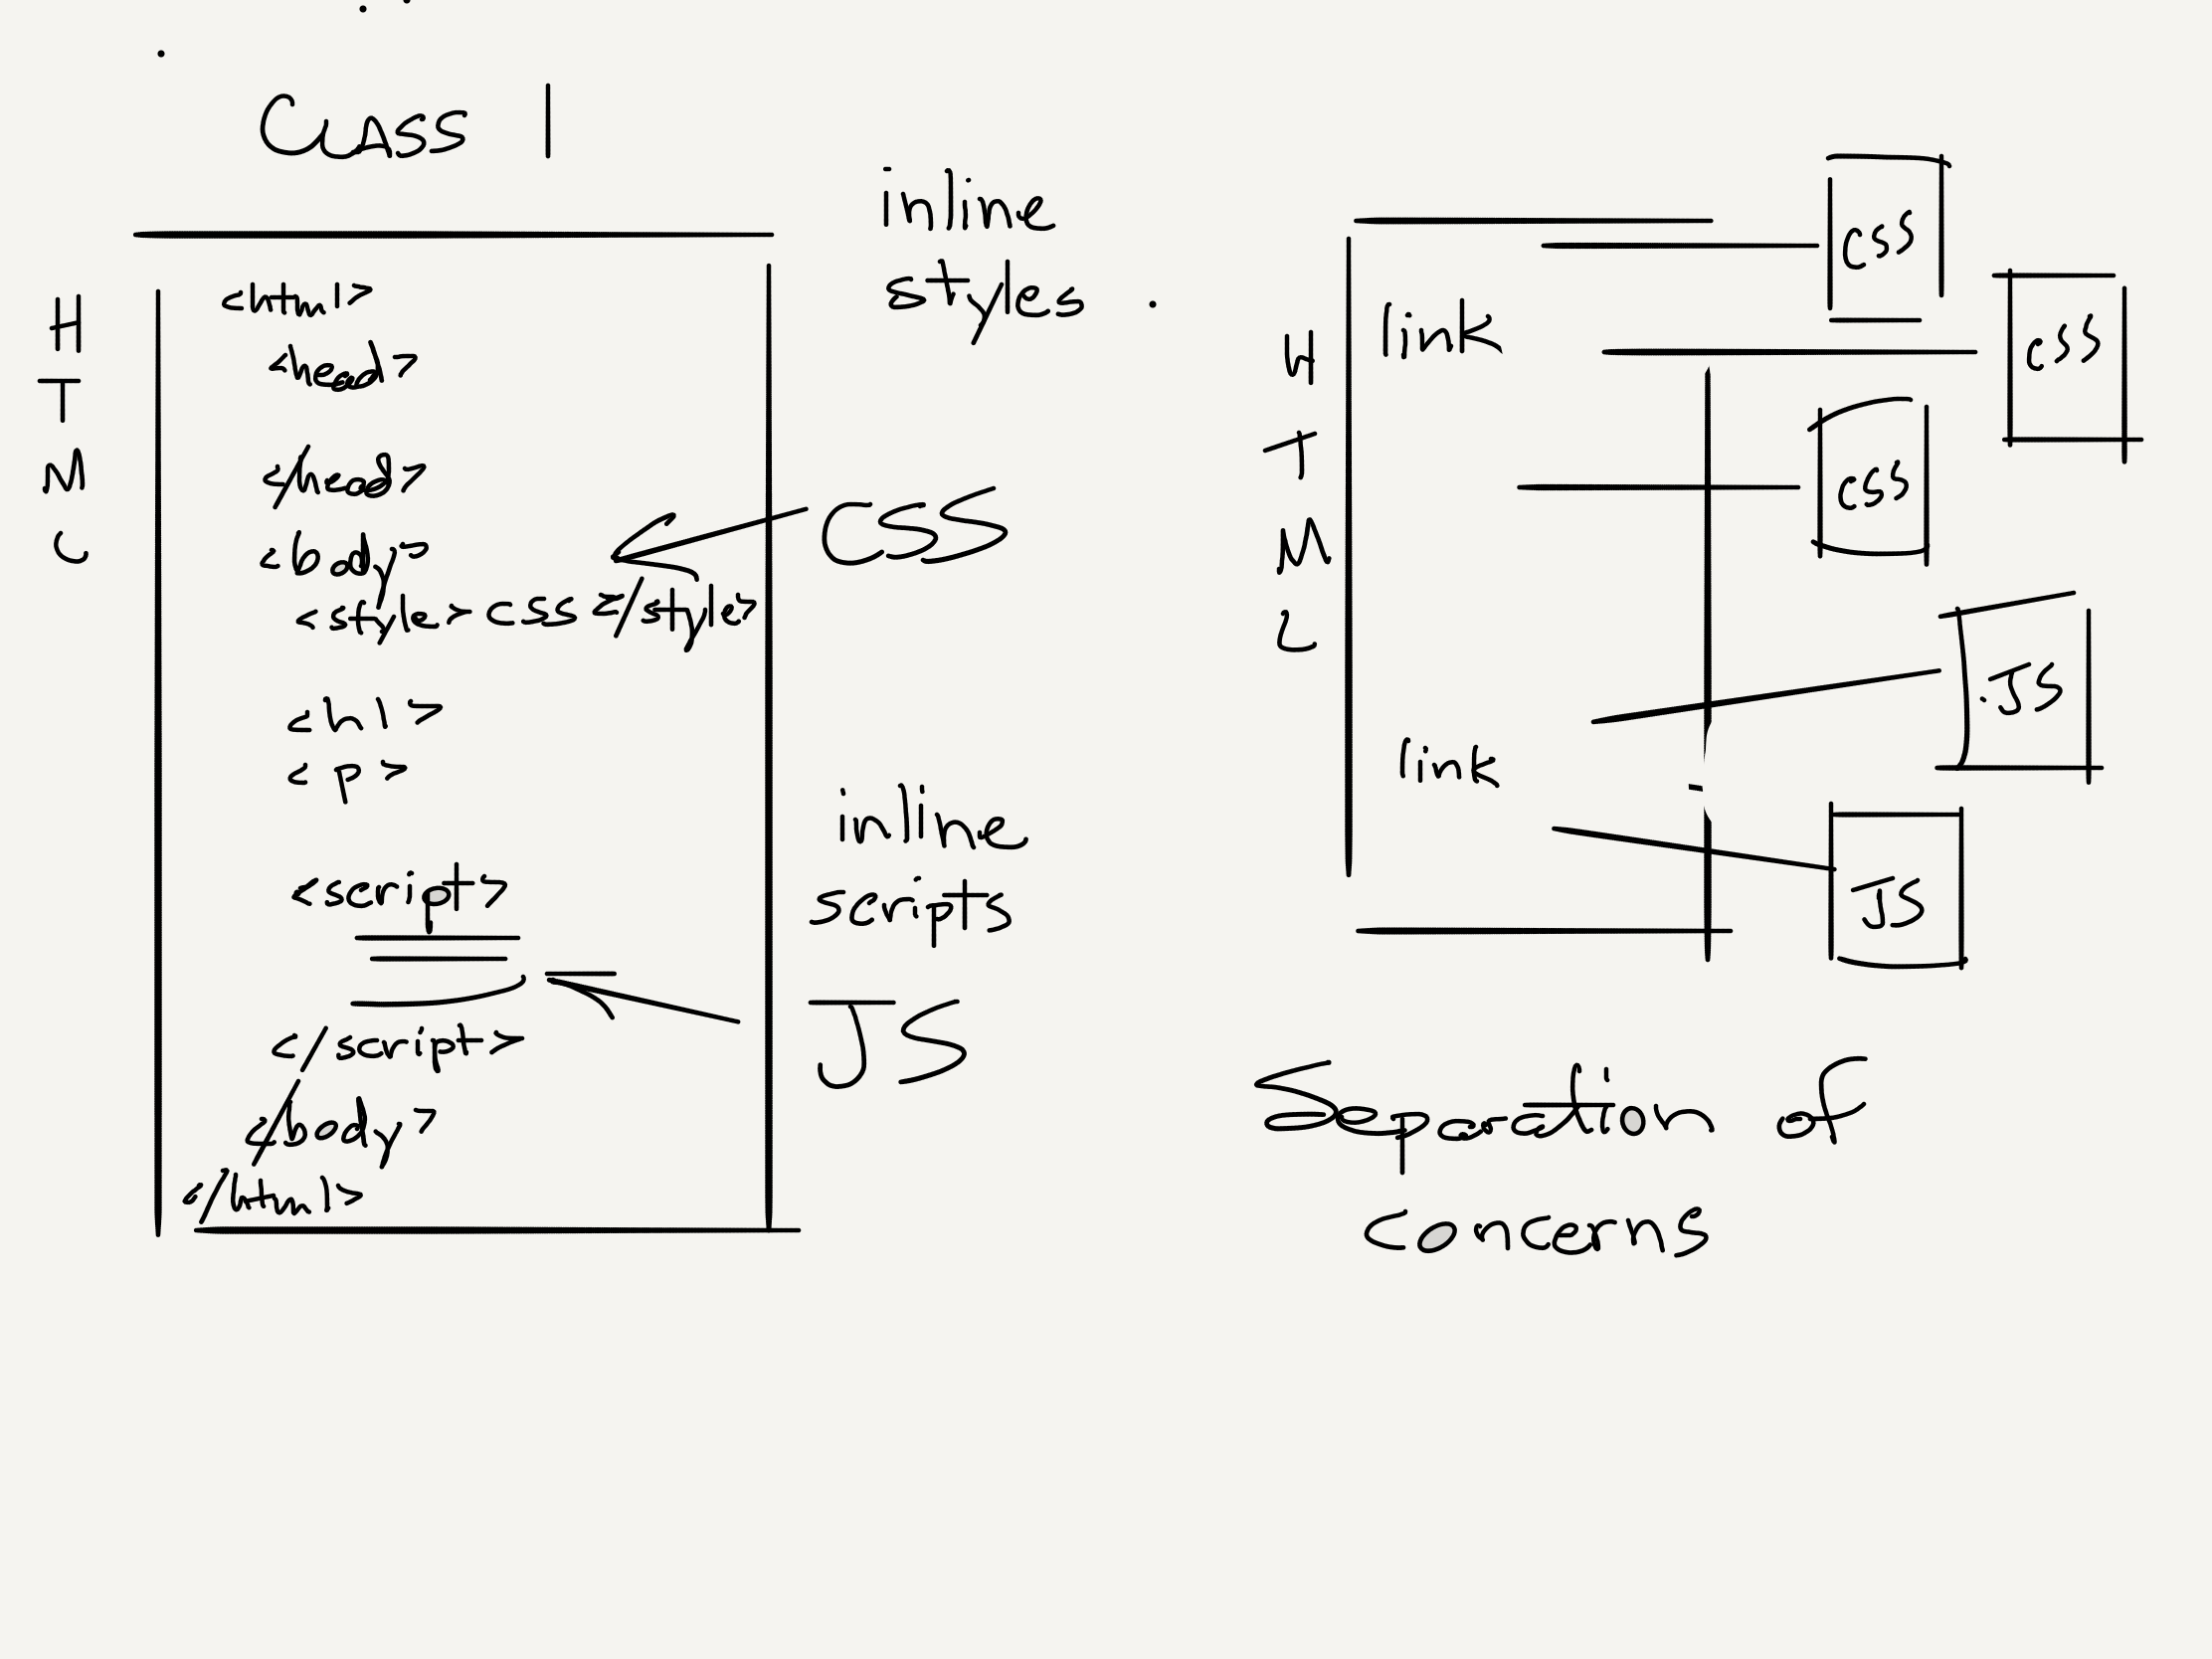 Class 1
H
T
M
L
<html>
<head>
</head>
<body>
<style> css </style>
<h1>
<p>
<script>
</script>
</body>
</html>
inline
styles
CSS
inline
scripts
JS
H
T
M
L
link
link
css
css
css
JS
JS
Separation of
concerns